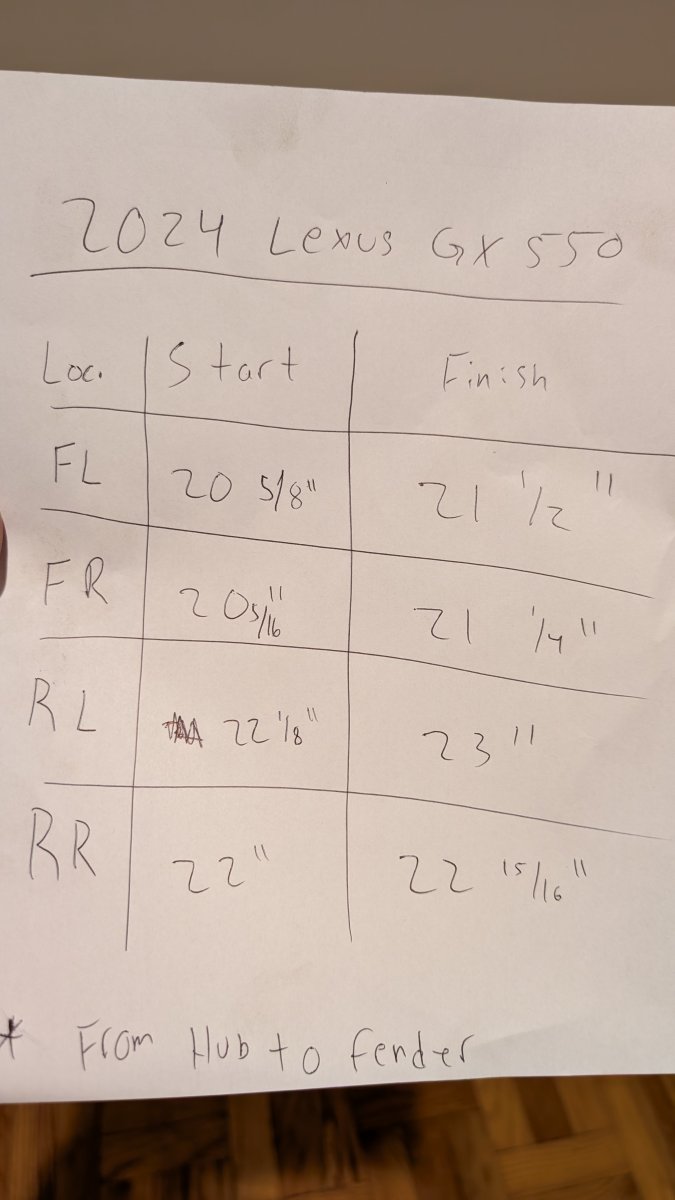 2024 Lexus GX 550
Loc. Start Finish
FL 20 5/8" 21 1/2"
FR 20 5/16" 21 1/4"
RL 22 1/8" 23"
RR 22" 22 15/16"
* From Hub to fender